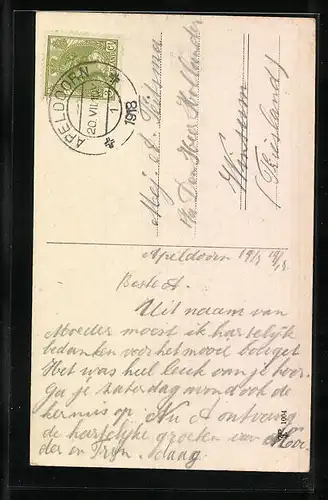 APELDOORN
20.VII
1
1918
Mej. A. Tuitsma
p/a Den Heer Hollander
Winsum
(Friesland)
Apeldoorn 19/7 1918.
Beste A.
Uit naam van
Moeder moest ik hartelijk
bedanken voor het mooie bouget
Het was heel leuk van je hoor.
Ga je Zaterdagavond ook de
kermis op. Nu A ontvang
de hartelijke groeten van Moe
der en Trijn. Daag.
1904